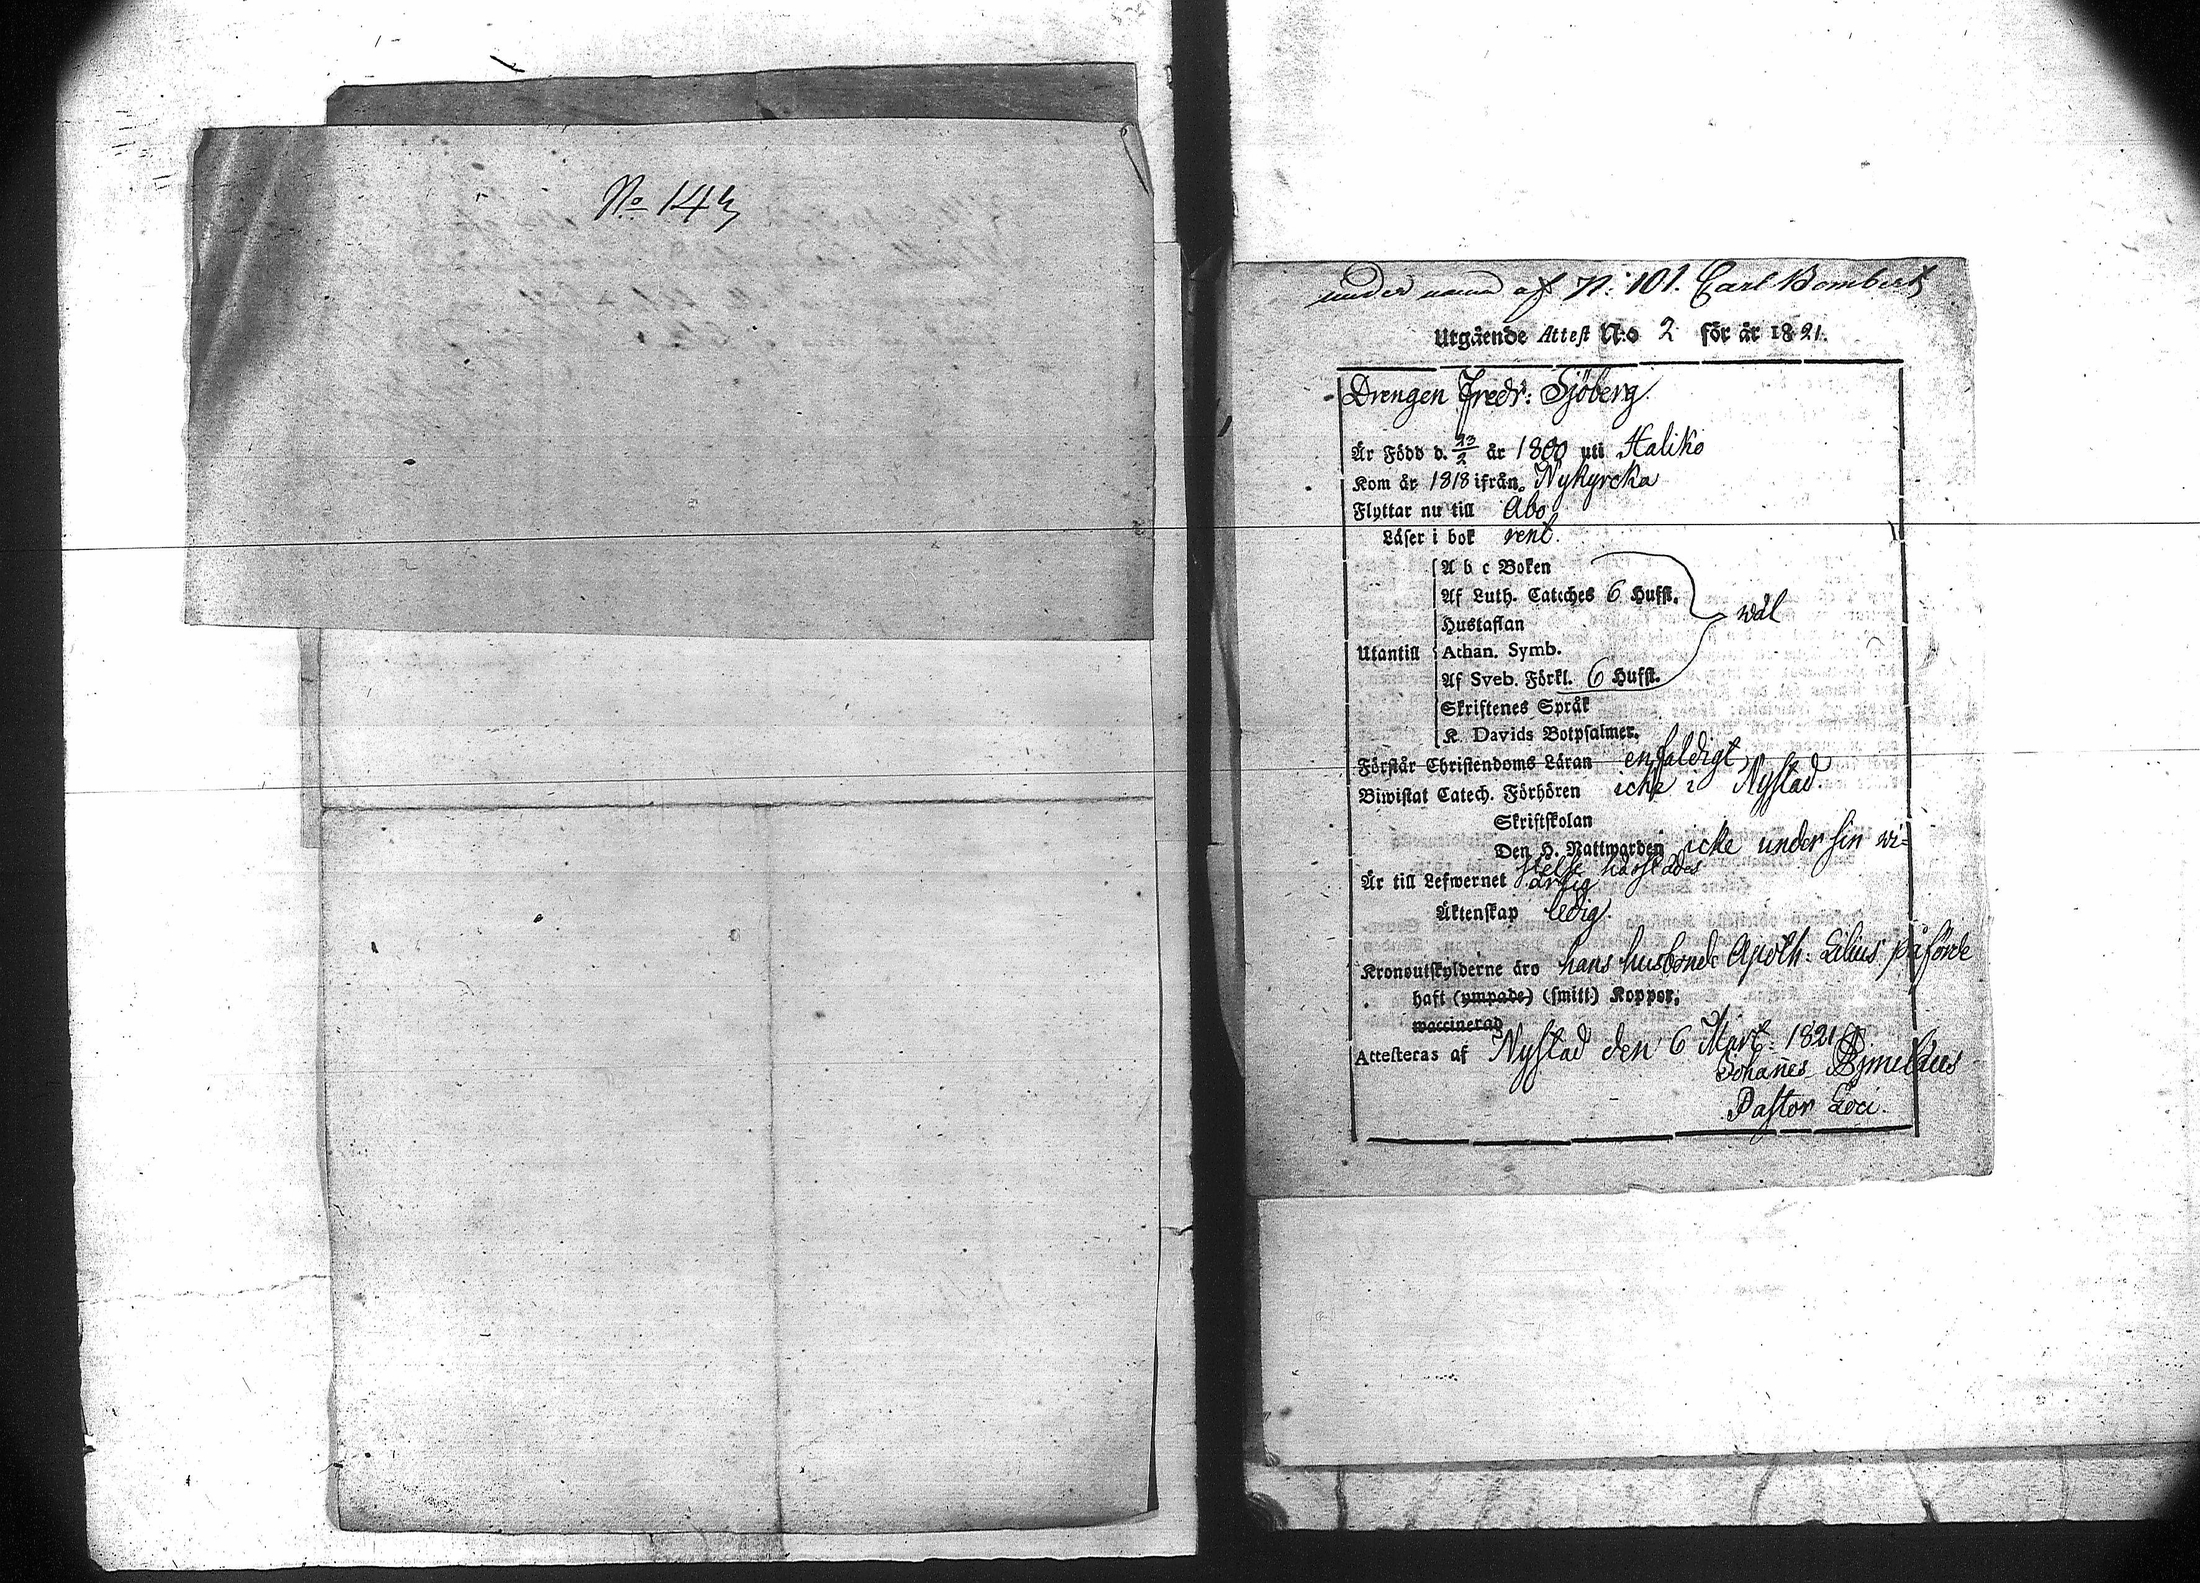 No 143
under namn af N: 101. Carl Bombert
Utgående Attest N:o 2 för år 1821.
Drengen Fredr: Sjöberg.
Är Född d. 23/2 år 1800 uti Haliko
Kom år 1818 ifrån Nykyrcka
Flyttar nu till Åbo
Läser i bok rent.
A b c Boken
Af Luth. Cateches 6 Hufst.
wäl
Hustaflan
Utantill Athan. Symb.
Af Sveb. Förkl. 6 Hufst.
Skriftenes Språk
K. Davids Botpsalmer.
Förstår Christendoms Läran enfaldigt
Biwistat Catech. Förhören icke i Nystad.
Skriftskolan
Den H. Nattwarden icke under sin wi=
stelse härstädes
Är till Lefwernet ärlig
Äktenskap ledig.
Kronoutskylderne äro hans husbonde Apoth: Lilius påförde
haft (ympade) (smitt) Koppor,
waccinerad
Attesteras af Nystad den 6 Mart: 1821
Johannes
Pastor Loci.